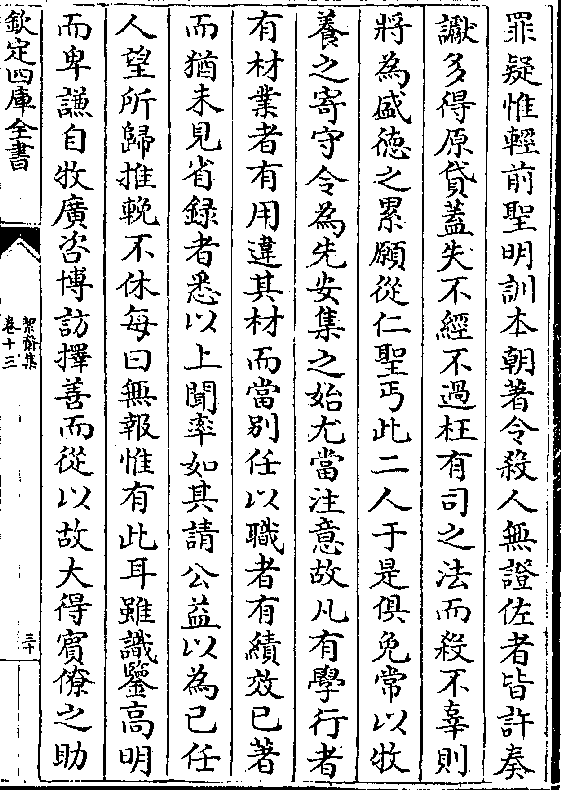 罪疑惟輕前聖明訓本朝著令殺人無證佐者皆許奏
讞多得原貸蓋失不經不過枉有司之法而殺不辜則
將為盛德之累願從仁聖丐此二人于是俱免常以牧
養之寄守令為先安集之始尤當注意故凡有學行者
有材業者有用違其材而當別任以職者有績效已著
而猶未見省録者悉以上聞率如其請公益以為己任
人望所歸推輓不休每曰無報惟有此耳雖識鑒高明
而卑謙自牧廣咨博訪擇善而從以故大得賓僚之助
欽定四庫全書
絜齋集
卷十三
三十